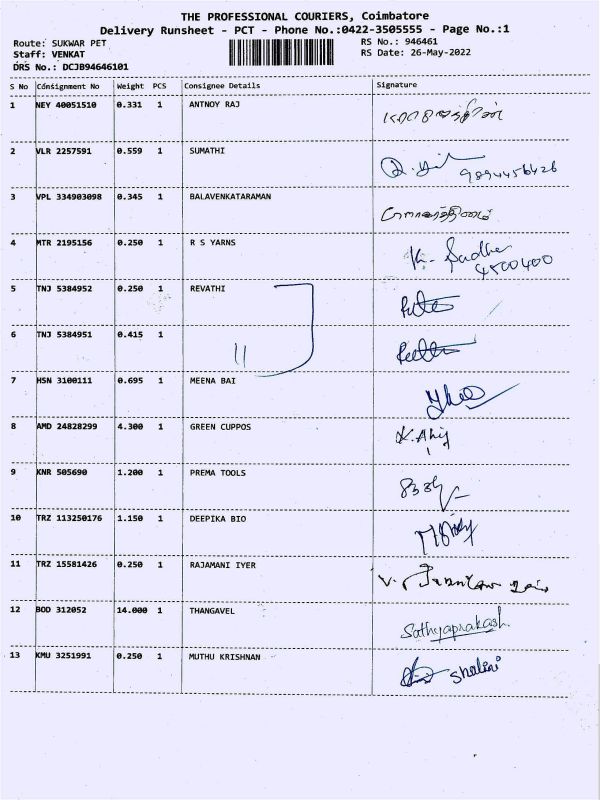 THE PROFESSIONAL COURIERS, Coimbatore
Delivery Runsheet - PCT - Phone No.:0422-3505555 - Page No.:1
Route: SUKWAR PET
Staff: VENKAT
DRS No.: DCJB94646101
RS No.: 946461
RS Date: 26-May-2022
S No Consignment No Weight PCS Consignee Details Signature
1 NEY 40051510 0.331 1 ANTNOY RAJ
2 VLR 2257591 0.559 1 SUMATHI 9894456426
3 VPL 334903098 0.345 1 BALAVENKATARAMAN
4 MTR 2195156 0.250 1 R S YARNS K. Sudha
4500400
5 TNJ 5384952 0.250 1 REVATHI
6 TNJ 5384951 0.415 1 11
7 HSN 3100111 0.695 1 MEENA BAI
8 AMD 24828299 4.300 1 GREEN CUPPOS
9 KNR 505690 1.200 1 PREMA TOOLS
10 TRZ 113250176 1.150 1 DEEPIKA BIO
11 TRZ 15581426 0.250 1 RAJAMANI IYER
12 BOD 312052 14.000 1 THANGAVEL Sathyaprakash
13 KMU 3251991 0.250 1 MUTHU KRISHNAN Shalini